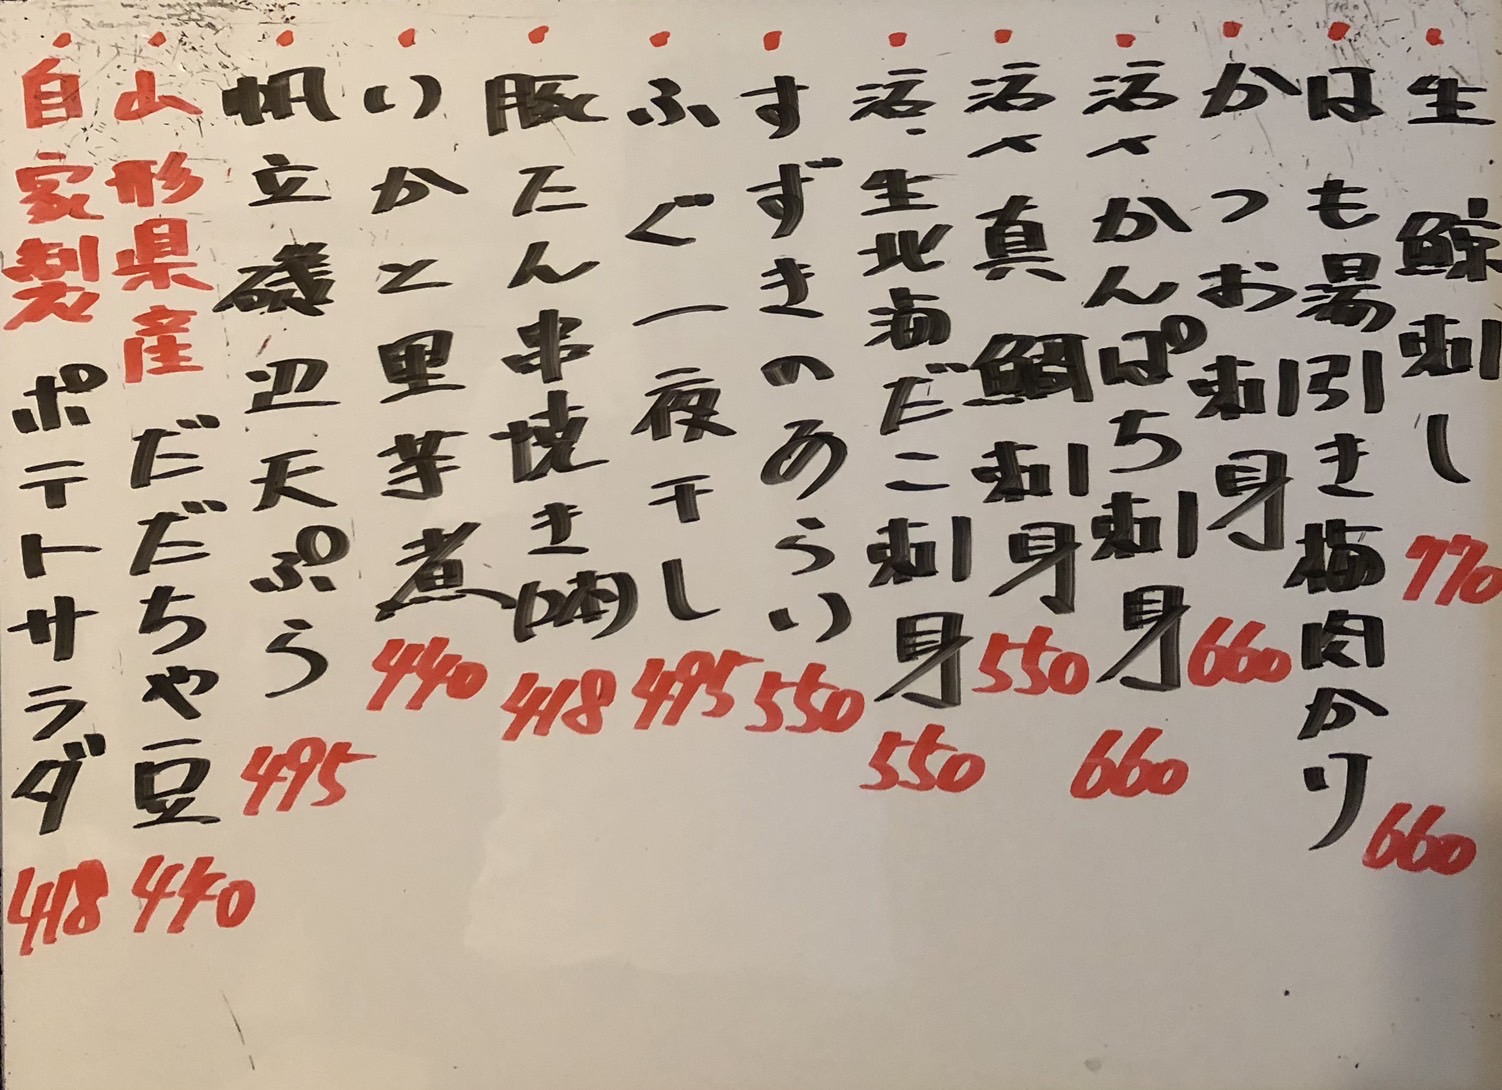 ・生鯨刺し 770
・はも湯引き梅肉かり 660
・かつお刺身 660
・活〆かんぱち刺身 660
・活〆真鯛刺身 550
・活・生北海だこ刺身 550
・すずきのあらい 550
・ふぐ一夜干し 495
・豚たん串焼き(2本) 418
・いかと里芋煮 440
・帆立磯辺天ぷら 495
・山形県産だだちゃ豆 440
・自家製ポテトサラダ 418